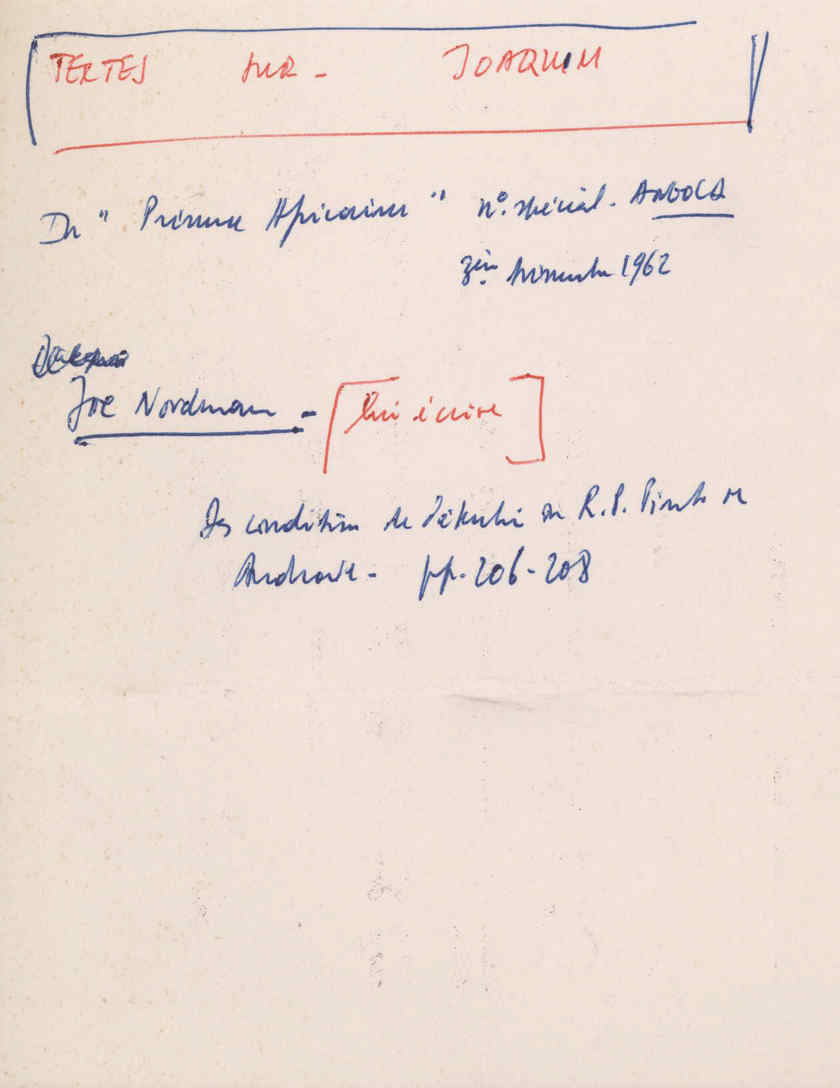 TEXTES SUR - JOAQUIM
Dr " Présence Africaine " nº. spécial. ANGOLA
3èm trimestre 1962
Joe Nordmann - [lui écrire]
Des conditions de détention du R.P. Pinto de
Andrade - pp. 206-208